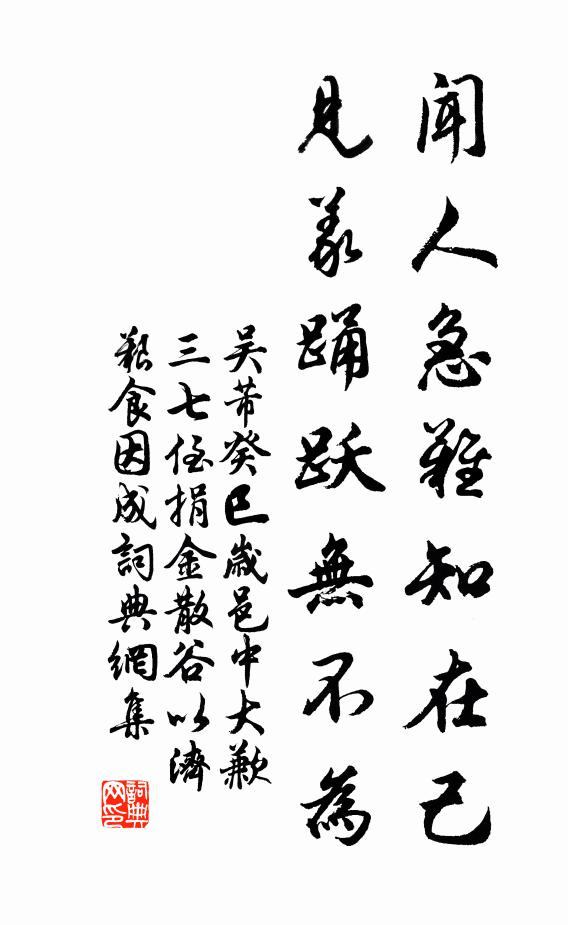 聞人急難知在己
見義踊跃無不為
吴芾癸巳歲邑中大歉
三七侄捐金散谷以濟
艱食因成詞典網集
詞典网印